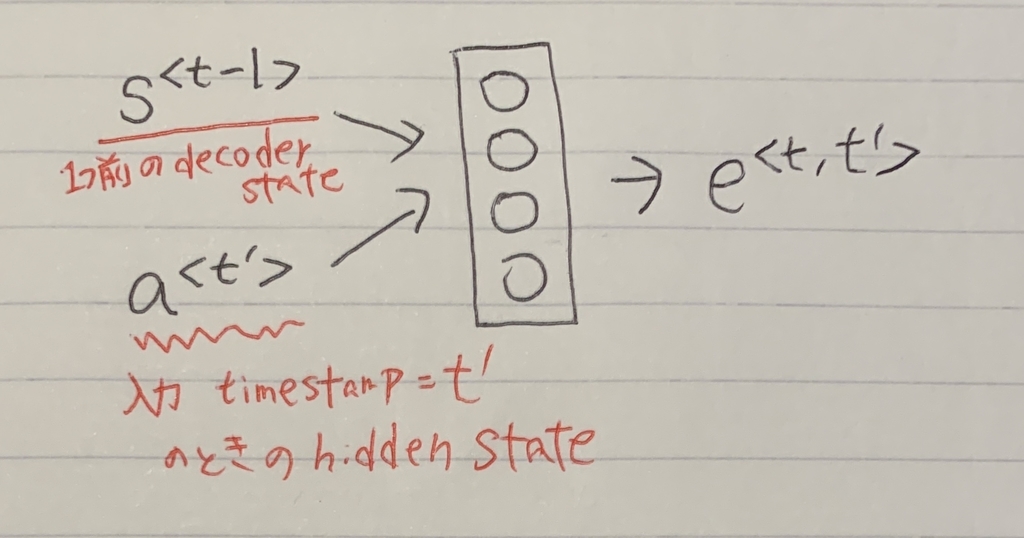 s<t-1>
1つ前のdecoder
state
e<t,t'>
a<t'>
入力 timestamp=t'
のときのhidden state